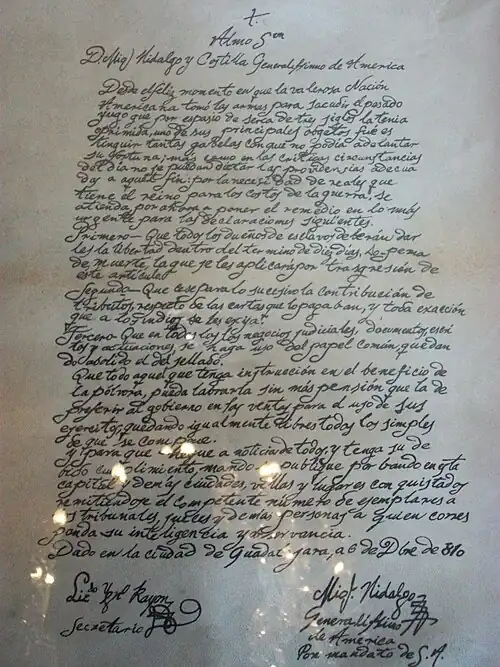 Almo Sᵒʳ
D. Migˡ Hidalgo y Costilla Generalissimo de America
Desde el feliz momento en que la valerosa Nación
Americana tomó las armas para sacudir el pesado
yugo que por espasio de serca de tres siglos la tenia
oprimida, uno de sus principales objetos fue es
tinguir tantas gabelas con que no podia adelantar
su fortuna; mas como en las criticas circunstancias
del dia no se puedan dictar las providencias adecua
das a aquel fin: por la necesidad de reales que
tiene el reino para los costos de la guerra, se
atienda por ahora a poner el remedio en lo más
urgente para las declaraciones siguientes.
Primero- Que todos los dueños de esclavos deberán dar
les la libertad dentro del termino de diez días, so pena
de muerte, la que se les aplicará por trasgresión de
este articulo.
Segundo- Que cese para lo sucesivo la contribución de
tributos, respeto de las castas que lo pagaban, y toda exacción
que a los indios se les exija.
Tercero Que en todos los negocios judiciales, documentos, escri
tos y actuaciones, se haga uso del papel común, quedan
do abolido el del sellado.
Que todo aquel que tenga instrucción en el beneficio de
la pólvora, pueda labrarla sin más pensión que la de
preferir al gobierno en las ventas para el uso de sus
ejersitos, quedando igualmente libres todos los simples
de que se compone.
Y para que llegue a noticia de todos y tenga su de
bido cumplimiento, mando se publique por bando en esta
capital y demás ciudades, villas y lugares conquistados
remitiendose el competente numero de ejemplares a
los tribunales, jueces y demás personas a quien corres
ponda su inteligencia y observancia.
Dado en la ciudad de Guadalajara, a 6 de Dbre de 810
Licᵈᵒ Rayon
Secretario
Migˡ Hidalgo
Generalissimo
de América
Por mandato de S. A.